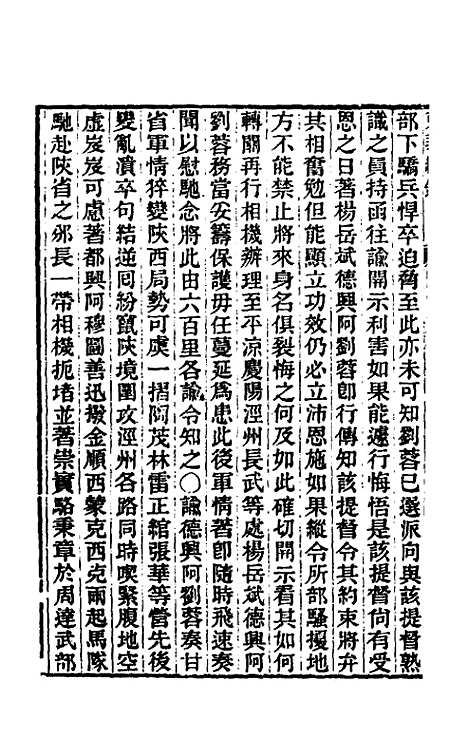 部下驕兵悍卒迫脅至此亦未可知劉蓉已選派向與該提督熟
識之員持函往諭開示利害如果能遽行悔悟是該提督尙有受
恩之日著楊岳斌德興阿劉蓉卽行傳知該提督令其約束將弁
其相奮勉但能顯立功效仍必立沛恩施如果縱令所部騷擾地
方不能禁止將來身名俱裂悔之何及如此確切開示看其如何
轉關再行相機辦理至平涼慶陽涇州長武等處楊岳斌德興阿
劉蓉務當妥籌保護毋任蔓延爲患此後軍情著卽隨時飛速奏
聞以慰馳念將此由六百里各諭令知之〇諭德興阿劉蓉奏甘
省軍情猝變陝西局勢可虞一摺阿茂林雷正綰張華等營先後
變亂潰卒句結逆回紛竄陝境圍攻涇州各路同時喫緊腹地空
虛岌岌可慮著都興阿穆圖善迅撥金順西蒙克西克爾起馬隊
馳赴陝省之邠長一帶相機扼堵並著崇實駱秉章於周達武部